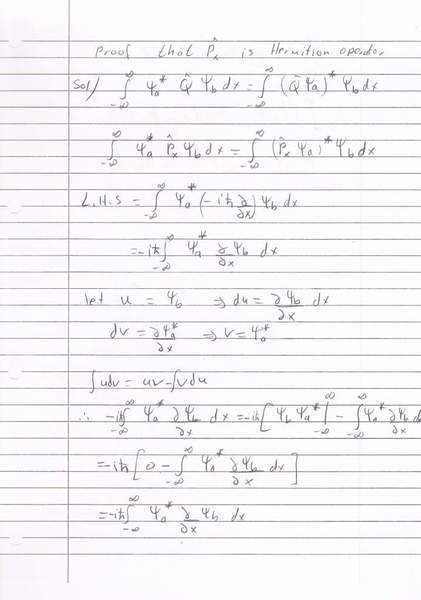 proof that P̂ₓ is Hermition operator
Sol) ∫_{-∞}^{∞} ψₐ* Q̂ ψ_b dx = ∫_{-∞}^{∞} (Q̂ ψₐ)* ψ_b dx
∫_{-∞}^{∞} ψₐ* P̂ₓ ψ_b dx = ∫_{-∞}^{∞} (P̂ₓ ψₐ)* ψ_b dx
L.H.S = ∫_{-∞}^{∞} ψₐ* (-iħ ∂/∂x) ψ_b dx
= -iħ ∫_{-∞}^{∞} ψₐ* ∂/∂x ψ_b dx
let u = ψ_b ⇒ du = ∂ψ_b/∂x dx
dv = ∂ψₐ*/∂x ⇒ v = ψₐ*
∫udv = uv - ∫vdu
∴ -iħ ∫_{-∞}^{∞} ψₐ* ∂ψ_b/∂x dx = -iħ [ψ_b ψₐ* |_{-∞}^{∞} - ∫_{-∞}^{∞} ψₐ* ∂ψ_b/∂x d
= -iħ [0 - ∫_{-∞}^{∞} ψₐ* ∂ψ_b/∂x dx]
= -iħ ∫_{-∞}^{∞} ψₐ* ∂/∂x ψ_b dx